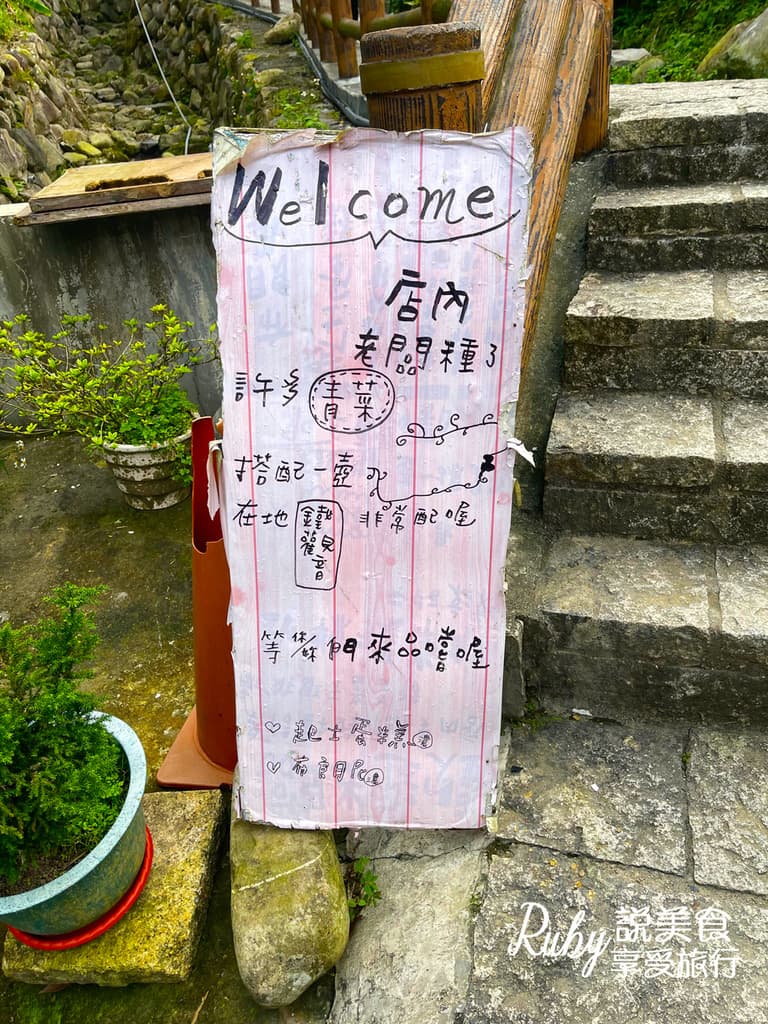 Welcome
店內
老闆種了
許多青菜
搭配一壺
在地鐵觀音非常配喔
等你們來品嚐喔
♡起士蛋糕
♡布朗尼
Ruby說美食
享受旅行